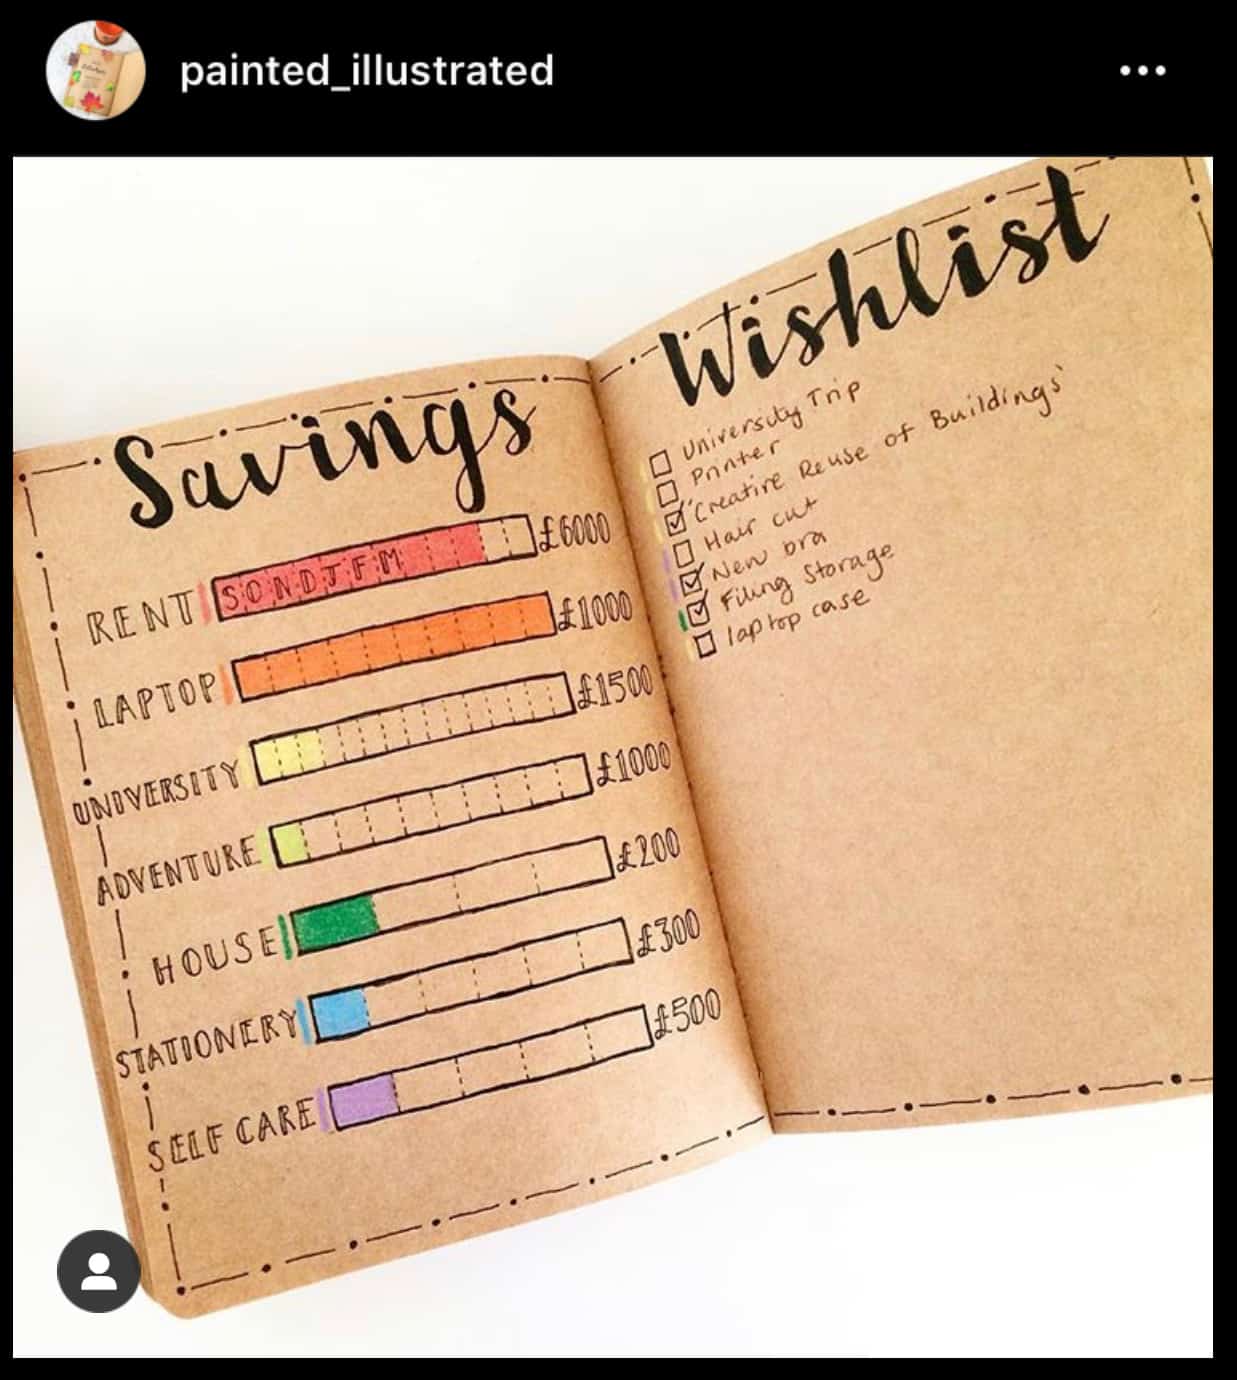 painted_illustrated
Savings
RENT S O N D J F M £6000
LAPTOP £1000
UNIVERSITY £1500
ADVENTURE £1000
HOUSE £200
STATIONERY £300
SELF CARE £500
Wishlist
University Trip
Printer
'Creative Reuse of Buildings'
Hair cut
New bra
Filing Storage
laptop case